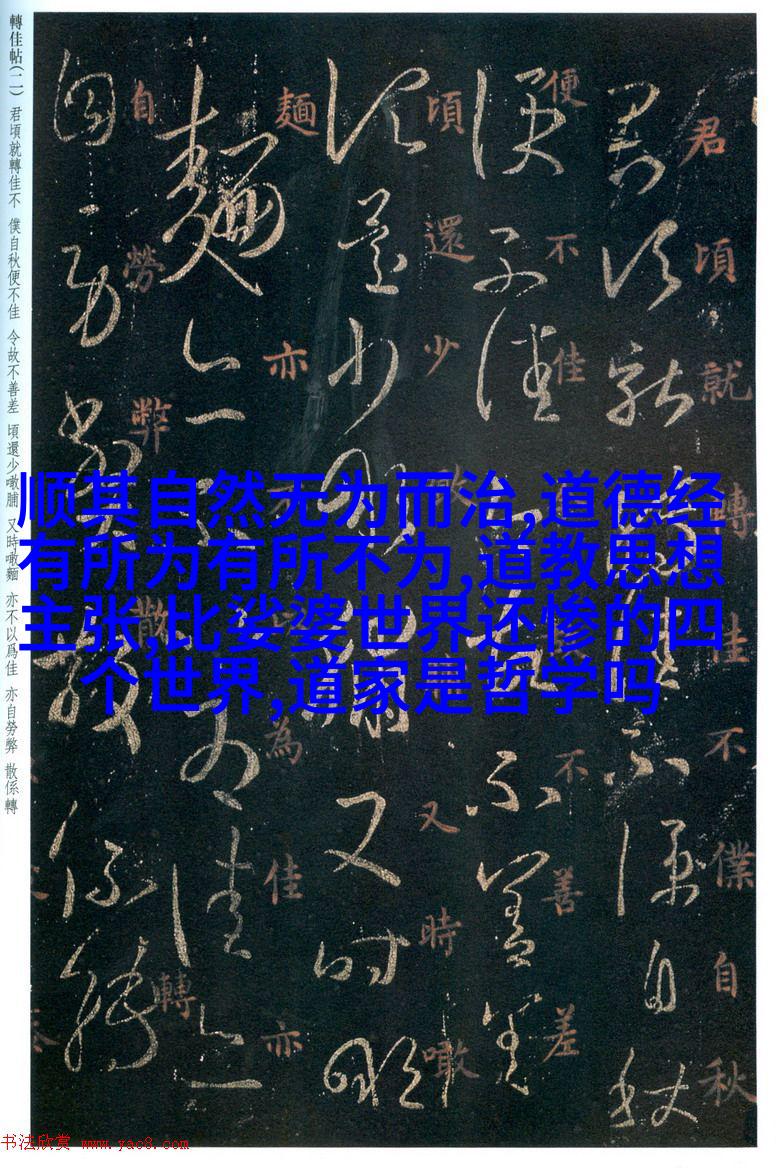 轉佳帖(二) 君頃就轉佳不 僕自秋便不佳 今故不善差 頃還少噉脯 又時噉麵 亦不以爲佳 亦自勞弊 散係轉
君頃就轉佳不僕自秋
便不佳今故不善差
頃還少噉脯又時噉
麵亦不以為佳亦
自勞弊散係轉
顺其自然无为而治,道德经
有所为有所不为,道教思想
主张,比娑婆世界还惨的四
个世界,道家是哲学吗
书法欣赏 www.yac8.com